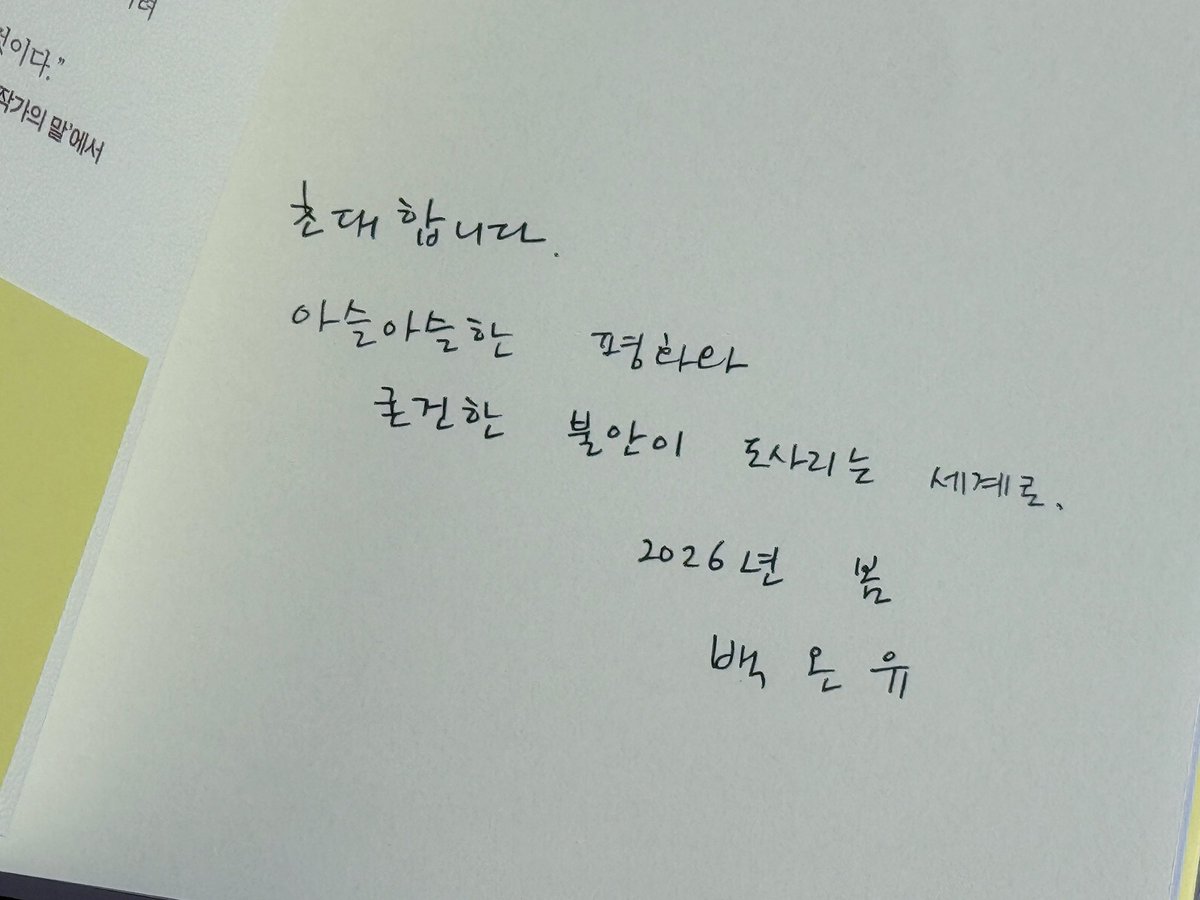 것이다.”
작가의 말’에서
초대합니다.
아슬아슬한 평화와
굳건한 불안이 도사리는 세계로.
2026년 봄
백온유